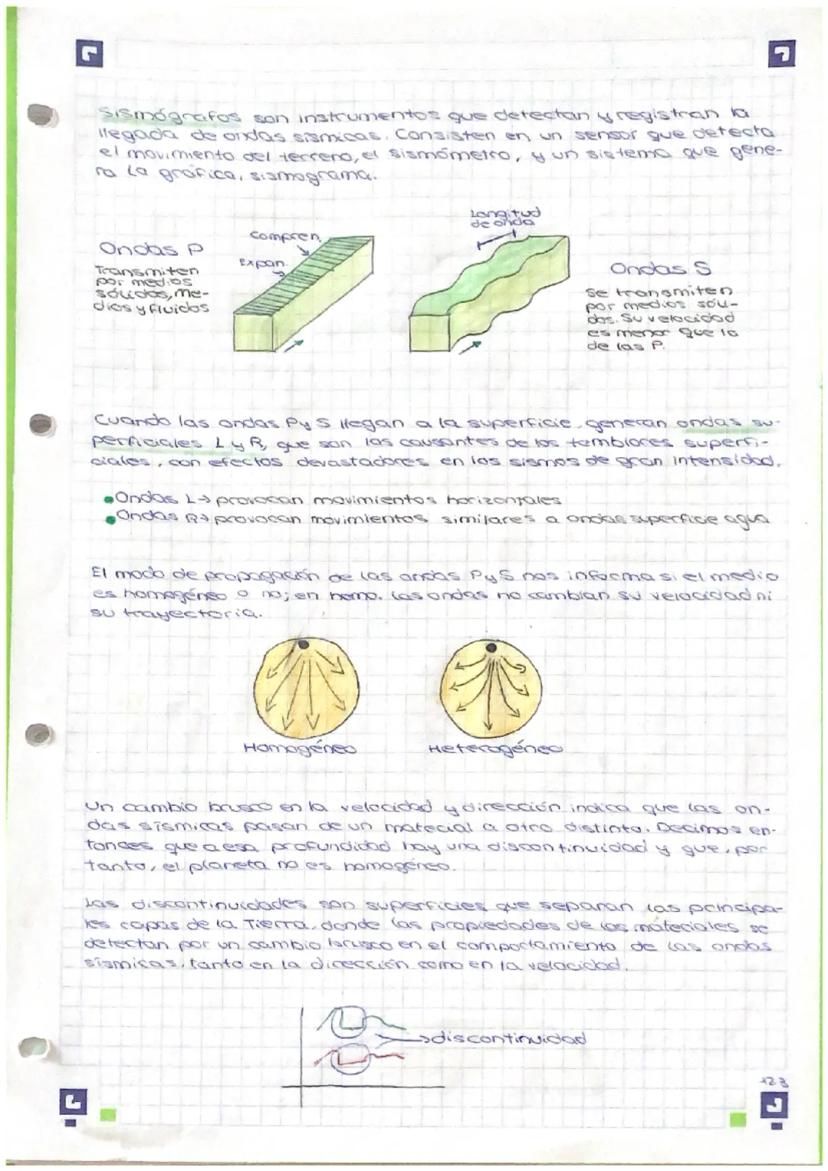 Sismógrafos son instrumentos que detectan y registran la
llegada de ondas sísmicas. Consisten en un sensor que detecta
el movimiento del terreno, el sismómetro, y un sistema que gene-
ra la gráfica, sismograma.
Ondas P
Transmiten
por medios
sólidos, me-
dios y fluidos
Compren.
Expan.
Longitud
de onda
Ondas S
Se transmiten
por medios sóli-
dos. Su velocidad
es menor que la
de las P.
Cuando las ondas P y S llegan a la superficie, generan ondas su-
perficiales L y R, que son las causantes de los temblores superfi-
ciales, con efectos devastadores en los sismos de gran intensidad.
Ondas L → provocan movimientos horizontales
Ondas R → provocan movimientos similares a ondas superficie agua
El modo de propagación de las ondas P y S nos informa si el medio
es homogéneo o no; en homo. las ondas no cambian su velocidad ni
su trayectoria.
Homogéneo
Heterogéneo
Un cambio brusco en la velocidad y dirección indica que las on-
das sísmicas pasan de un material a otro distinto. Decimos en-
tonces que a esa profundidad hay una discontinuidad y que, por
tanto, el planeta no es homogéneo.
Las discontinuidades son superficies que separan las principa-
les capas de la Tierra, donde las propiedades de los materiales se
detectan por un cambio brusco en el comportamiento de las ondas
sísmicas, tanto en la dirección como en la velocidad.
→ discontinuidad
123